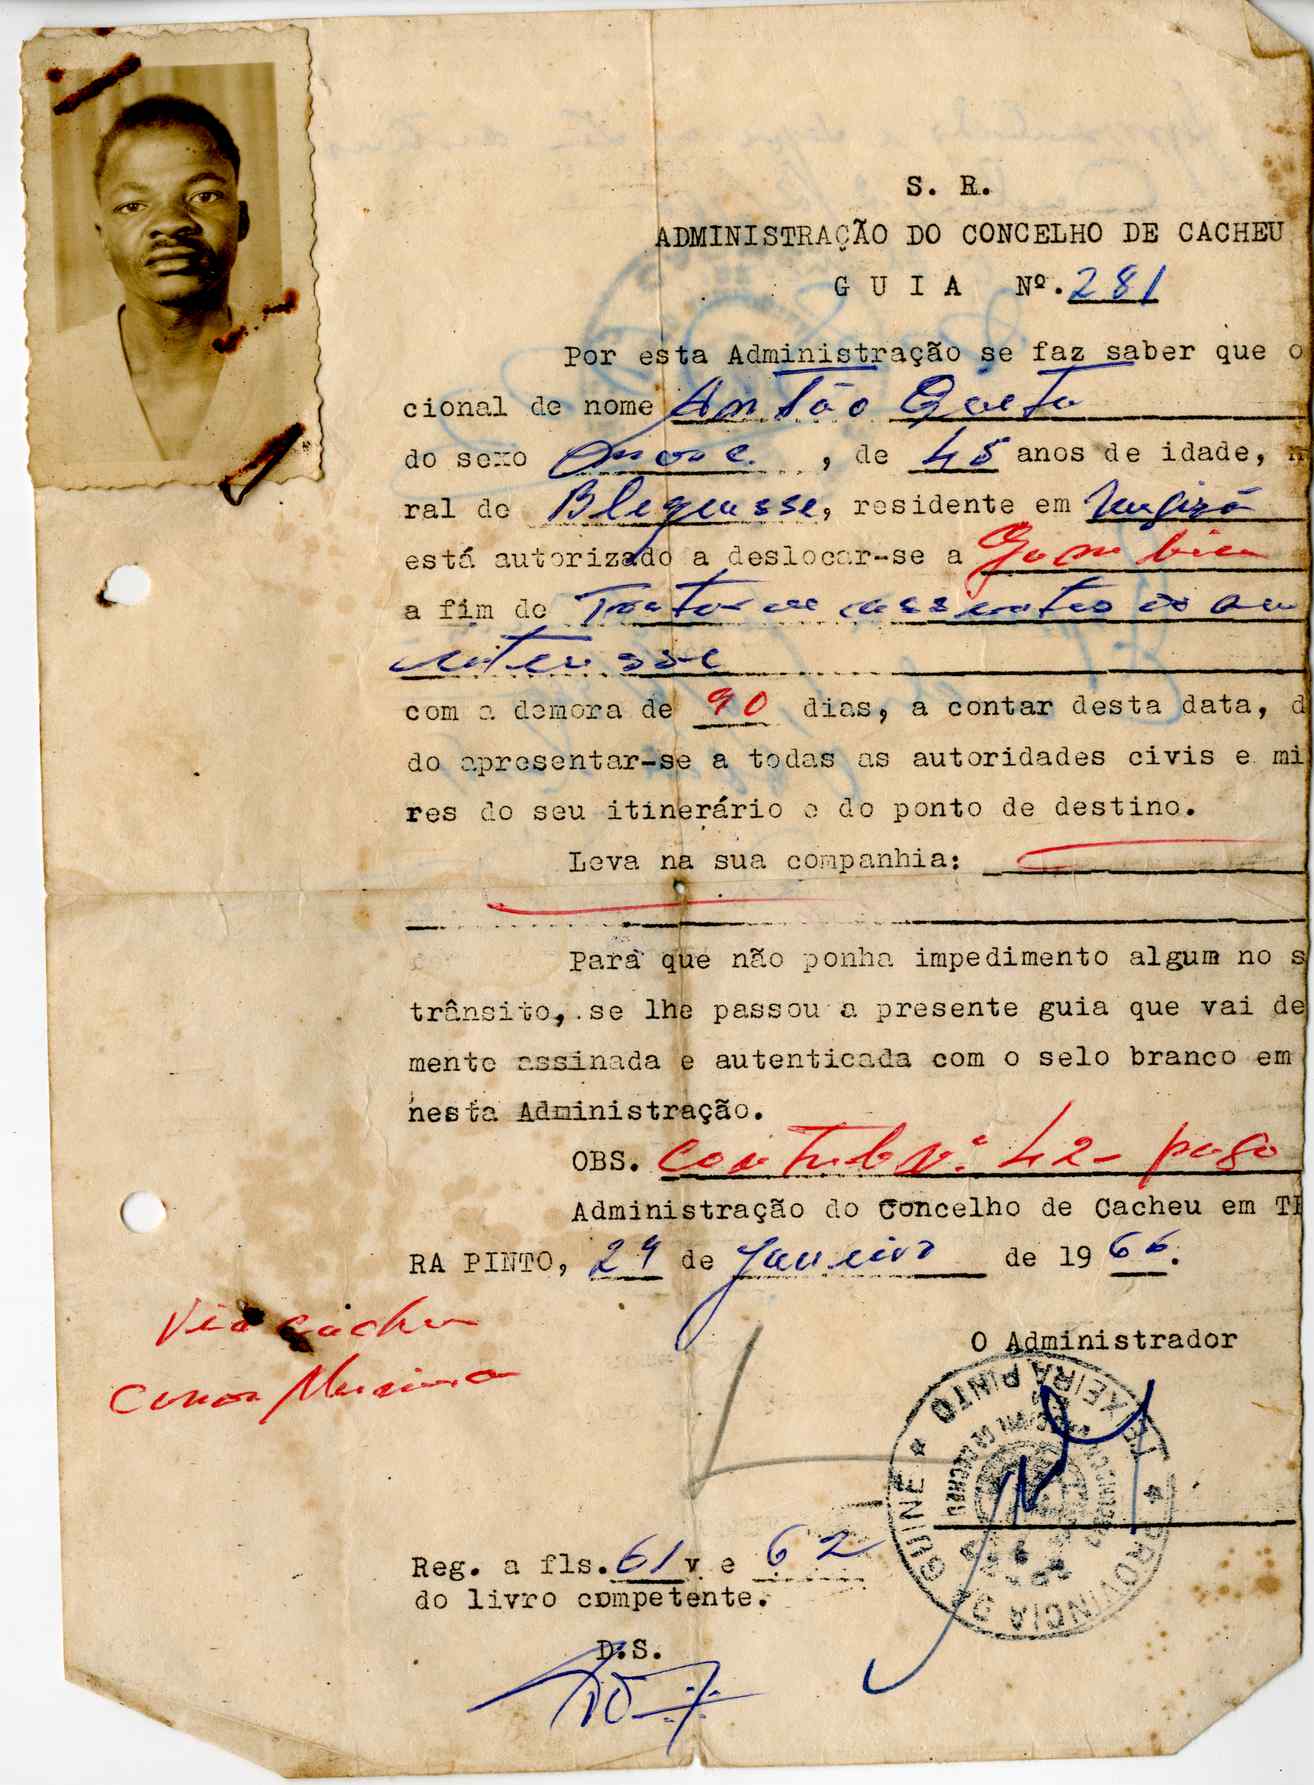 S. R.
ADMINISTRAÇÃO DO CONCELHO DE CACHEU
G U I A Nº. 281
Por esta Administração se faz saber que o
cional de nome Antão Gueta
do sexo masc. , de 45 anos de idade, n
ral de Blequisse, residente em
está autorizado a deslocar-se a Gambia
a fim de Tratar de assuntos do seu
interesse
com a demora de 90 dias, a contar desta data, d
do apresentar-se a todas as autoridades civis e mi
res do seu itinerário e do ponto de destino.
Leva na sua companhia:
Para que não ponha impedimento algum no s
trânsito, se lhe passou a presente guia que vai de
mente assinada e autenticada com o selo branco em
nesta Administração.
OBS. Contrib Nº 42 - pago
Administração do Concelho de Cacheu em TE
RA PINTO, 29 de Janeiro de 1966.
Via Cacheu
O Administrador
PROVINCIA DA GUINÉ * TEIXEIRA PINTO *
Reg. a fls. 61 v e 62
do livro competente.
D.S.